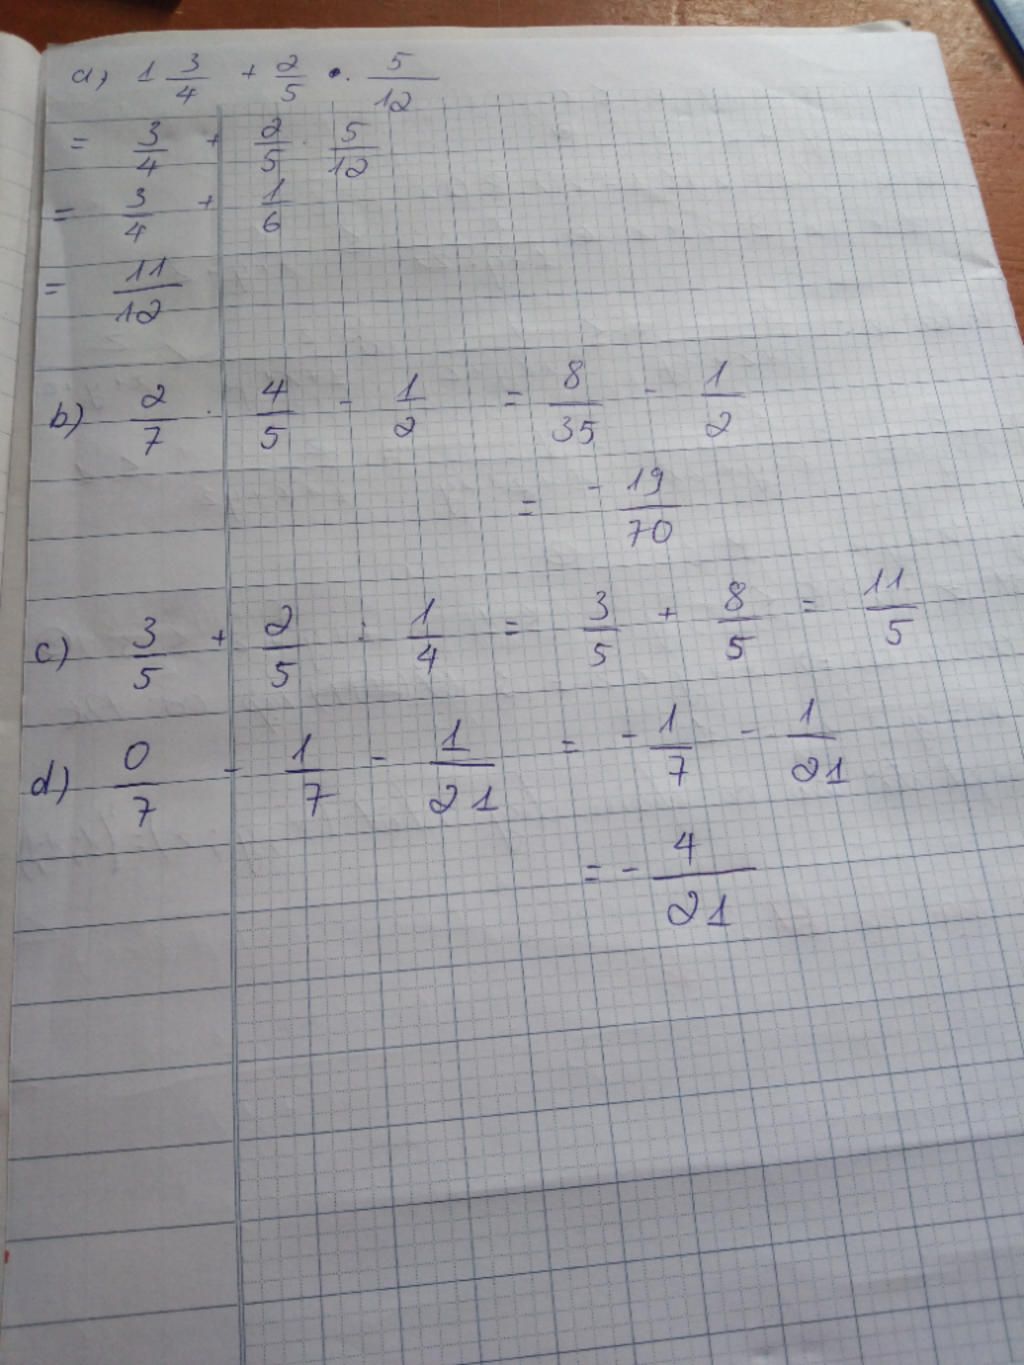 a) 1 3/4 + 2/5 · 5/12
= 3/4 + 2/5 · 5/12
= 3/4 + 1/6
= 11/12
b) 2/7 · 4/5 - 1/2 = 8/35 - 1/2
= - 19/70
c) 3/5 + 2/5 : 1/4 = 3/5 + 8/5 = 11/5
d) 0/7 - 1/7 - 1/21 = - 1/7 - 1/21
= - 4/21